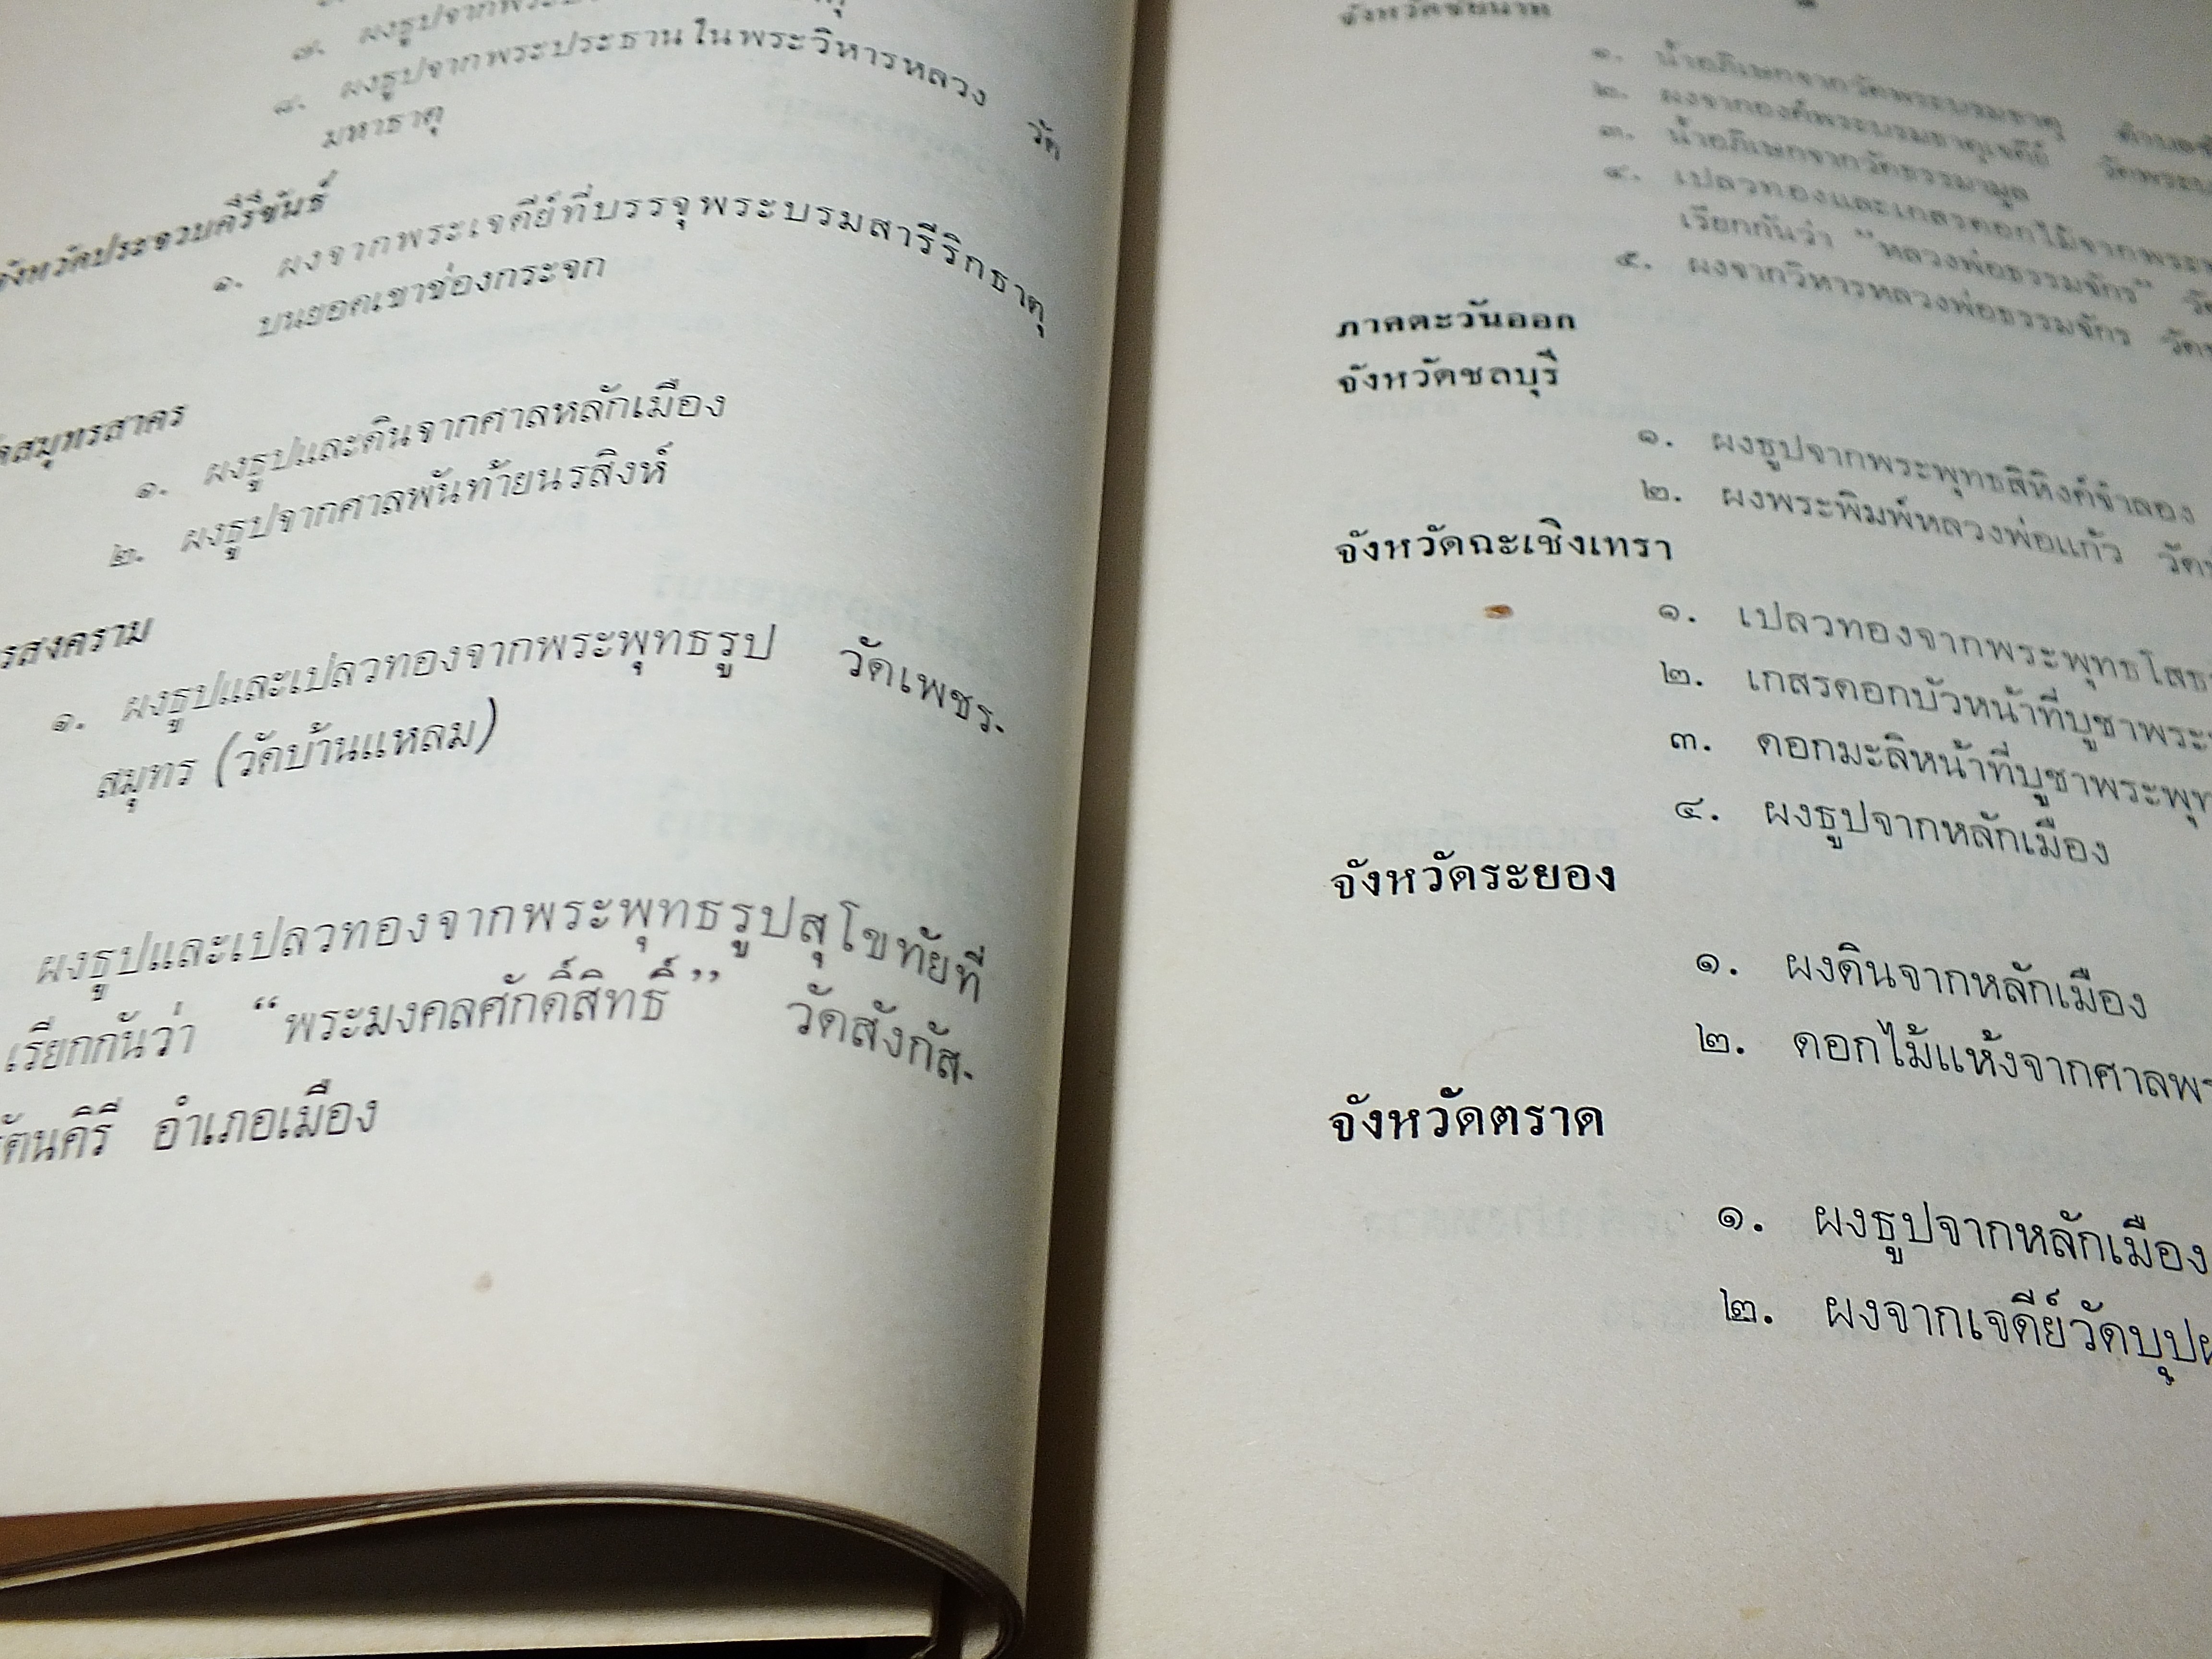 ๗. ผงธูปจากพระ
๘. ผงธูปจากพระประธานในพระวิหารหลวง วัด
มหาธาตุ
จังหวัดประจวบคีรีขันธ์
๑. ผงจากพระเจดีย์ที่บรรจุพระบรมสารีริกธาตุ
บนยอดเขาช่องกระจก
สมุทรสาคร
๑. ผงธูปและดินจากศาลหลักเมือง
๒. ผงธูปจากศาลพันท้ายนรสิงห์
รสงคราม
๑. ผงธูปและเปลวทองจากพระพุทธรูป วัดเพชร-
สมุทร (วัดบ้านแหลม)
ผงธูปและเปลวทองจากพระพุทธรูปสุโขทัยที่
เรียกกันว่า “พระมงคลศักดิ์สิทธิ์” วัดสังกัส-
รัตนคิรี อำเภอเมือง
จังหวัดชัยนาท
๑. น้ำอภิเษกจากวัดพระบรมธาตุ ตำบลชั
๒. ผงจากองค์พระบรมธาตุเจดีย์ วัดพระบ
๓. น้ำอภิเษกจากวัดธรรมามูล
๔. เปลวทองและเกสรดอกไม้จากพระพ
เรียกกันว่า “หลวงพ่อธรรมจักร” วั
๕. ผงจากวิหารหลวงพ่อธรรมจักร วัด
ภาคตะวันออก
จังหวัดชลบุรี
๑. ผงธูปจากพระพุทธสิหิงค์จำลอง
๒. ผงพระพิมพ์หลวงพ่อแก้ว วัด
จังหวัดฉะเชิงเทรา
๑. เปลวทองจากพระพุทธโสธ
๒. เกสรดอกบัวหน้าที่บูชาพระ
๓. ดอกมะลิหน้าที่บูชาพระพุ
๔. ผงธูปจากหลักเมือง
จังหวัดระยอง
๑. ผงดินจากหลักเมือง
๒. ดอกไม้แห้งจากศาลพร
จังหวัดตราด
๑. ผงธูปจากหลักเมือง
๒. ผงจากเจดีย์วัดบุปผ